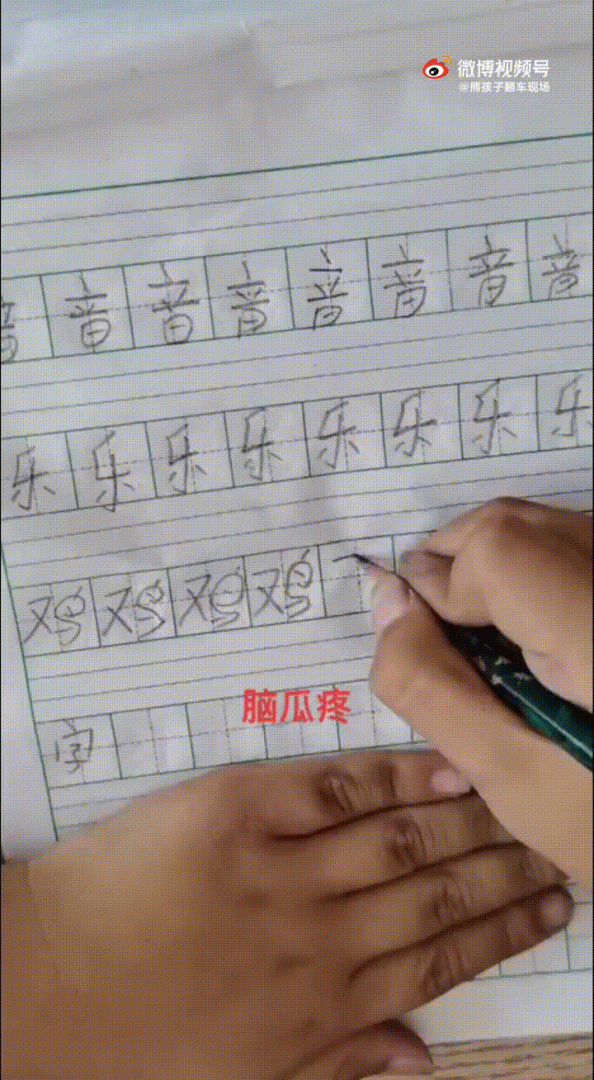 微博视频号
@熊孩子翻车现场
音 音 音 音 音 音 音 音
乐 乐 乐 乐 乐 乐 乐 乐
鸡 鸡 鸡 鸡
脑瓜疼
字